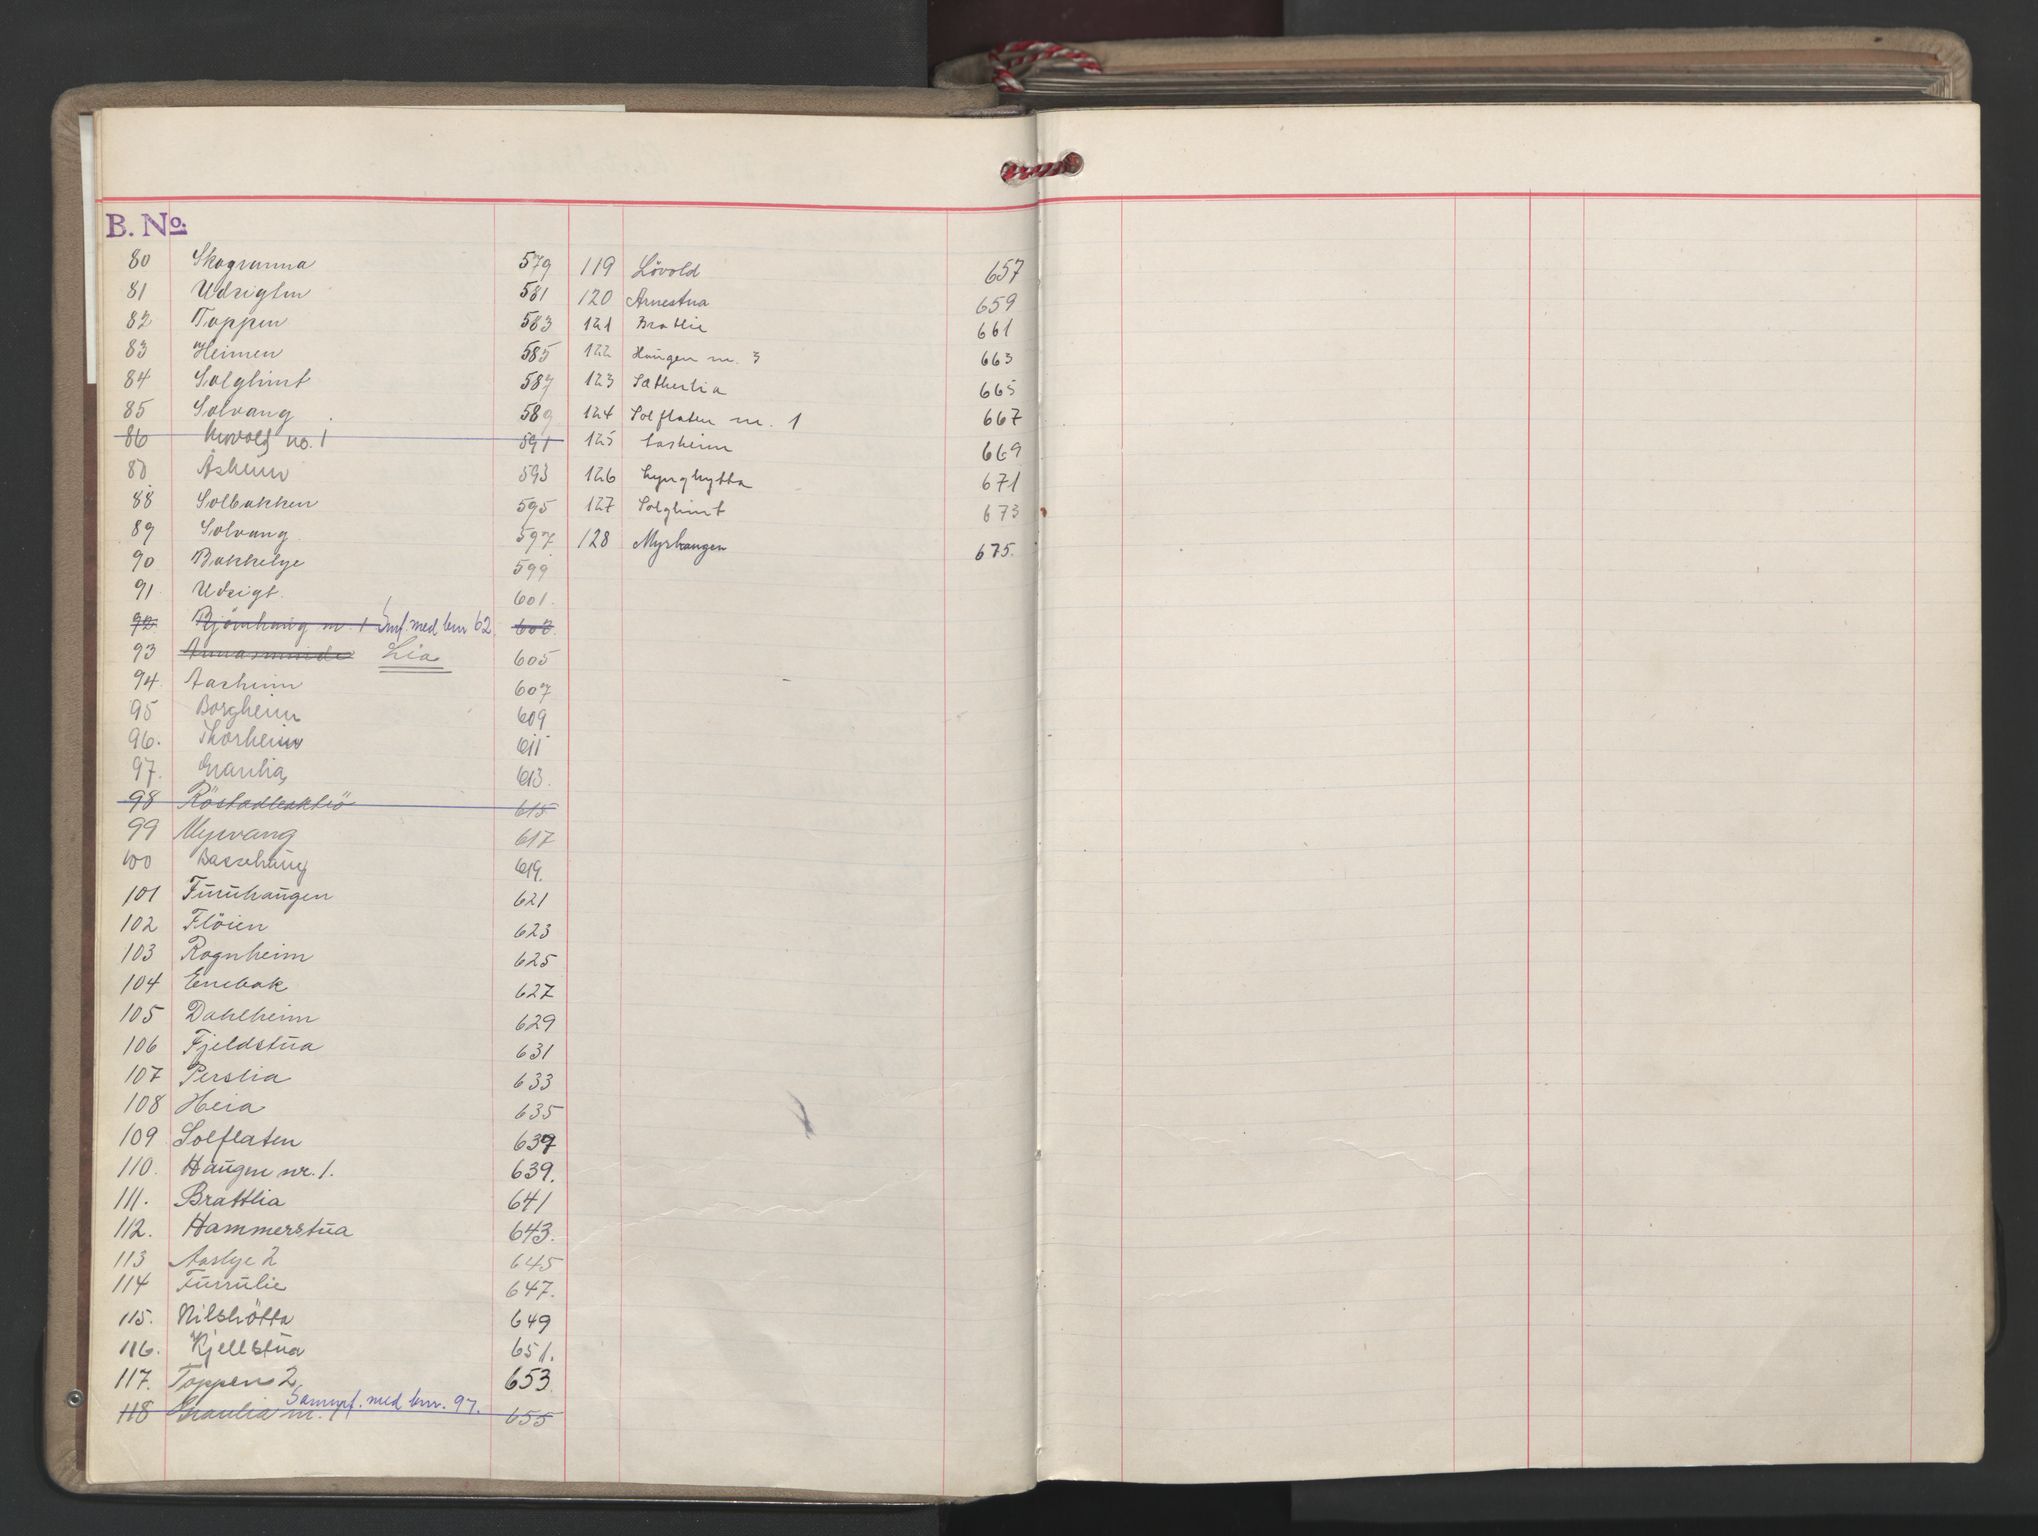 B. No.
80 Skogranna 579
81 Udsigten 581
82 Toppen 583
83 Heimen 585
84 Solglimt 587
85 Solvang 589
86 no. 1 591
87 Åsheim 593
88 Solbakken 595
89 Solvang 597
90 Bakkelye 599
91 Udsigt. 601.
92. Bjørnhaug nr. 1 Smf. med bnr 62 603.
93 Annasminde Lia 605
94. Aasheim 607
95 Borgheim 609
96. Thorheim 611
97. Granlia 613.
98 615
99 Myrvang 617
100 Bassehaug 619.
101 Furuhaugen 621
102 Flöien 623
103 Rognheim 625
104 Enebak 627
105 Dahlheim 629
106 Fjeldstua 631
107 Perslia 633
108 Heia 635
109 Solflaten 637
110. Haugen nr. 1. 639.
111. Brattlia 641
112. Hammerstua 643.
113 Aaslye 2 645
114 Furrulie 647.
115. Nilshötta 649
116. Kjellstua 651.
117. Toppen 2 653
Sammf. med bnr. 97.
118 Granlia nr. 1 655
119 Lövold 657
120 Arnestua 659
121 Bratlie 661
122 Haugen nr. 3 663
123 Sætherlia 665
124 Solflaten nr. 1 667
125 Aasheim 669
126 Lynghytta 671
127 Solglimt 673
128 Myrhaugen 675.